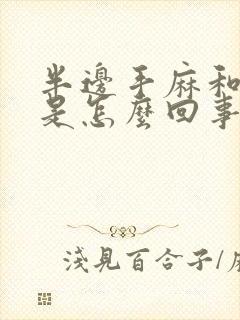 半邊手麻和
是怎麼回事
淺見百合子/